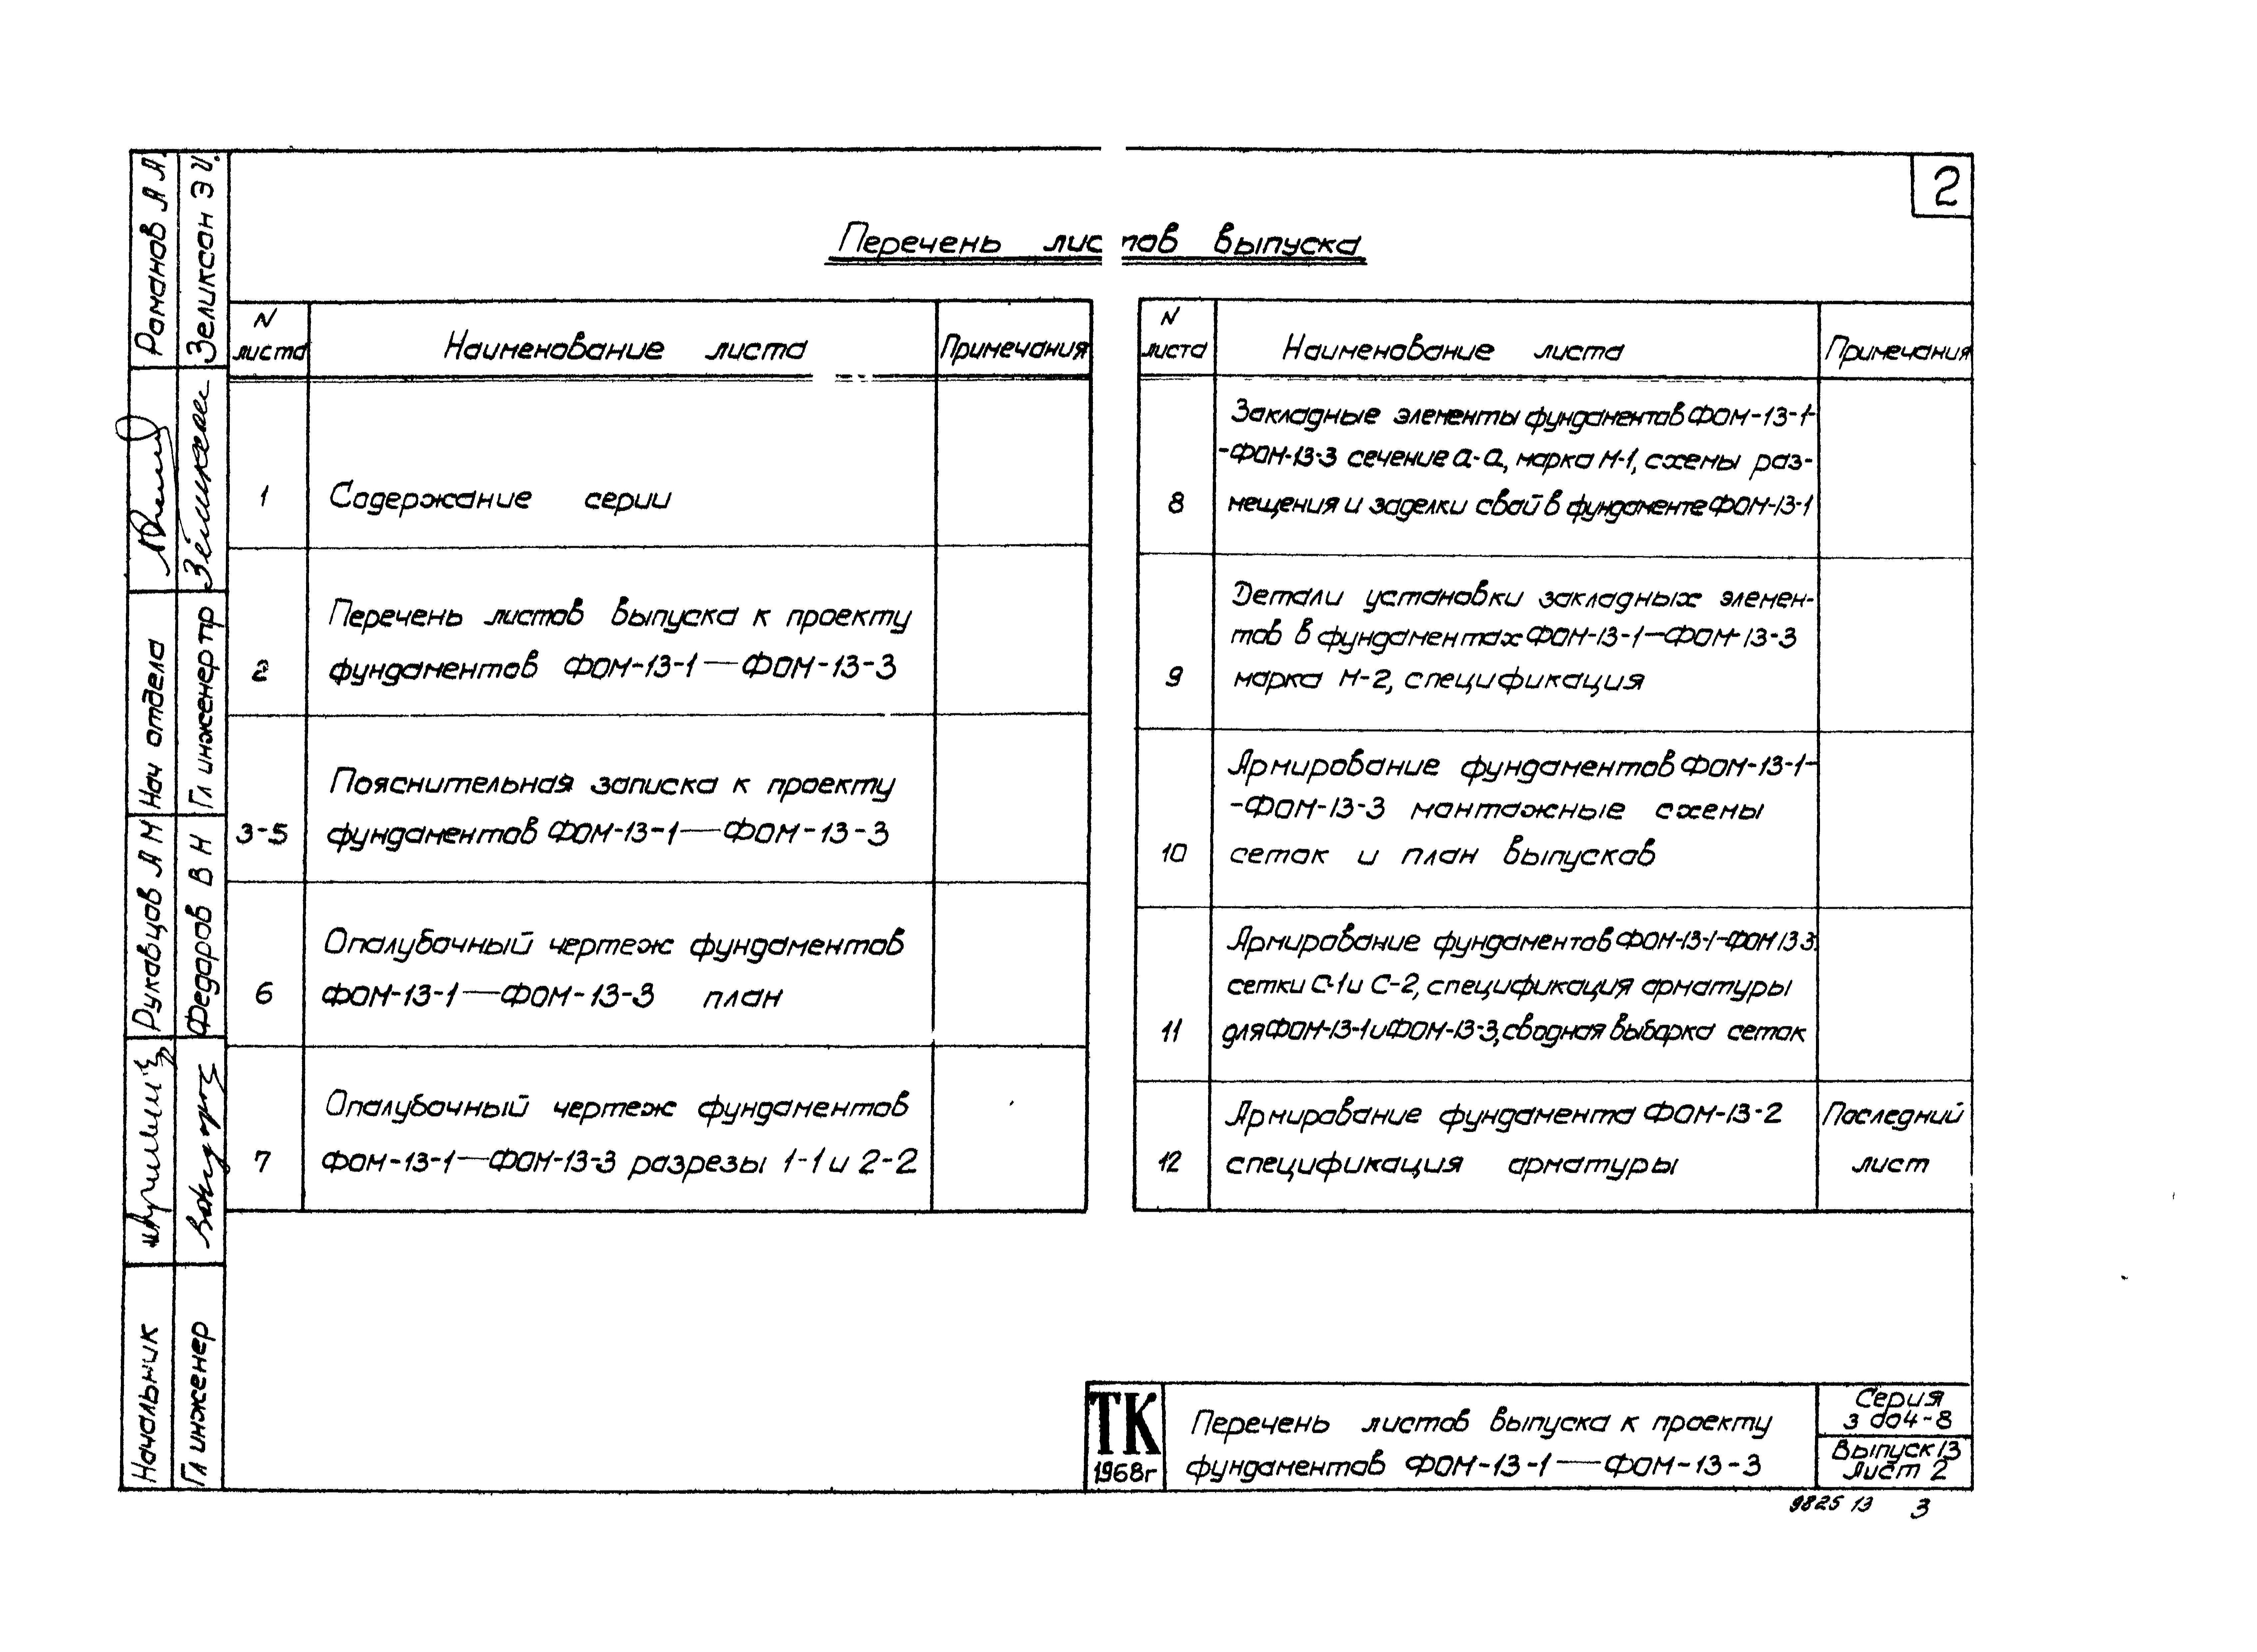 2
Перечень листов выпуска
N листа
Наименование листа
Примечания
1
Содержание серии
2
Перечень листов выпуска к проекту
фундаментов ФОМ-13-1—ФОМ-13-3
3-5
Пояснительная записка к проекту
фундаментов ФОМ-13-1—ФОМ-13-3
6
Опалубочный чертеж фундаментов
ФОМ-13-1—ФОМ-13-3 план
7
Опалубочный чертеж фундаментов
ФОМ-13-1—ФОМ-13-3 разрезы 1-1 и 2-2
N листа
Наименование листа
Примечания
8
Закладные элементы фундаментов ФОМ-13-1-
-ФОМ-13-3 сечение а-а, марка М-1, схемы раз-
мещения и заделки свай в фундаменте ФОМ-13-1
9
Детали установки закладных элемен-
тов в фундаментах ФОМ-13-1—ФОМ-13-3
марка М-2, спецификация
10
Армирование фундаментов ФОМ-13-1-
-ФОМ-13-3 монтажные схемы
сеток и план выпусков
11
Армирование фундаментов ФОМ-13-1-ФОМ 13 3.
сетки С-1 и С-2, спецификация арматуры
для ФОМ-13-1 и ФОМ-13-3, сводная выборка сеток
12
Армирование фундамента ФОМ-13-2
спецификация арматуры
Последний
лист
Романов А А.
Зеликсон Э И.
Нач отдела
Гл инженер пр
Рукавцов А М
Федоров В Н
Начальник
Гл инженер
ТК
1968г
Перечень листов выпуска к проекту
фундаментов ФОМ-13-1—ФОМ-13-3
Серия
3 004-8
Выпуск 13
Лист 2
9825 13 3